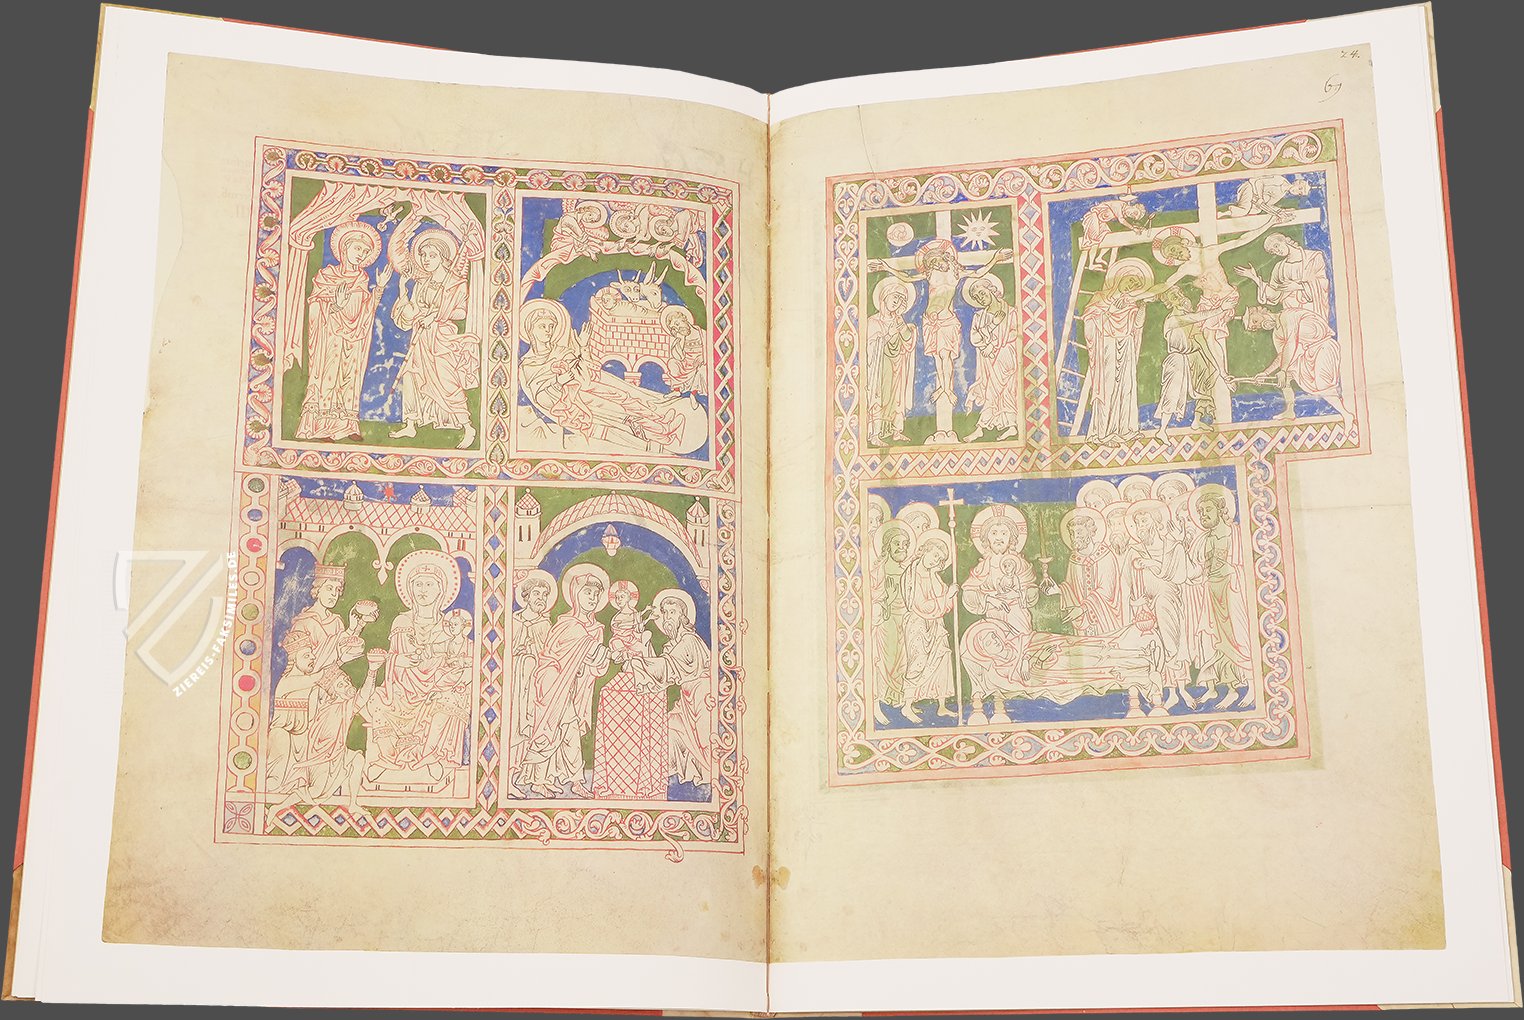 24.
69
ZIEREIS-FAKSIMILES.DE